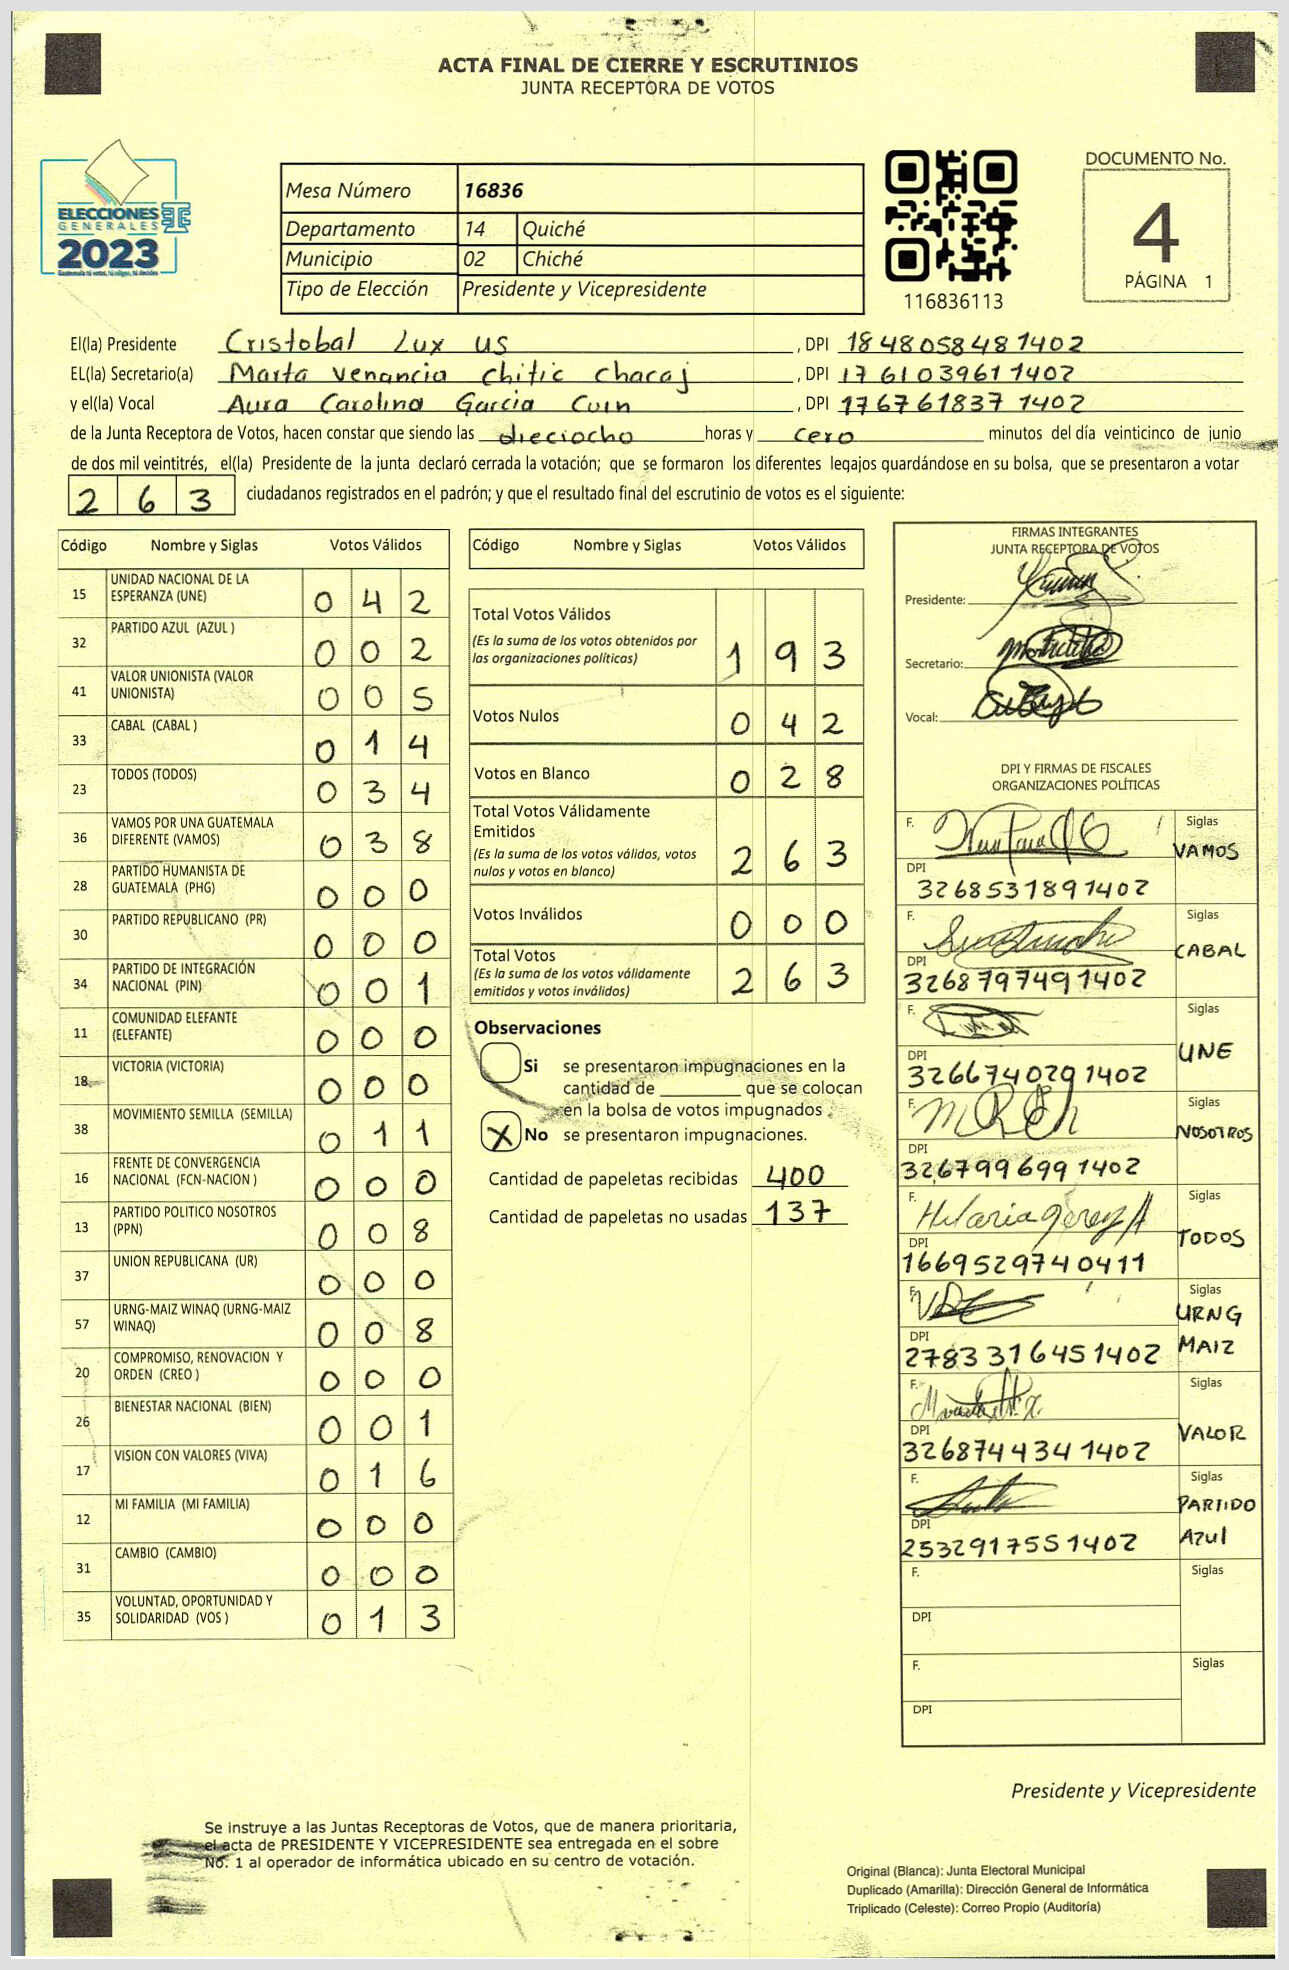 ACTA FINAL DE CIERRE Y ESCRUTINIOS
JUNTA RECEPTORA DE VOTOS
ELECCIONES
GENERALES
2023
Guatemala tú votas, tú eliges, tú decides
Mesa Número 16836
Departamento 14 Quiché
Municipio 02 Chiché
Tipo de Elección Presidente y Vicepresidente
116836113
DOCUMENTO No.
4
PÁGINA 1
El(la) Presidente Cristobal Lux us, DPI 1848058481402
EL(la) Secretario(a) Marta Venancia Chitic Chacaj, DPI 1761039611402
y el(la) Vocal Aura Carolina Garcia Cuin, DPI 1767618371402
de la Junta Receptora de Votos, hacen constar que siendo las dieciocho horas y cero minutos del día veinticinco de junio
de dos mil veintitrés, el(la) Presidente de la junta declaró cerrada la votación; que se formaron los diferentes legajos guardándose en su bolsa, que se presentaron a votar
263 ciudadanos registrados en el padrón; y que el resultado final del escrutinio de votos es el siguiente:
Código Nombre y Siglas Votos Válidos
15 UNIDAD NACIONAL DE LA ESPERANZA (UNE) 042
32 PARTIDO AZUL (AZUL ) 002
41 VALOR UNIONISTA (VALOR UNIONISTA) 005
33 CABAL (CABAL ) 014
23 TODOS (TODOS) 034
36 VAMOS POR UNA GUATEMALA DIFERENTE (VAMOS) 038
28 PARTIDO HUMANISTA DE GUATEMALA (PHG) 000
30 PARTIDO REPUBLICANO (PR) 000
34 PARTIDO DE INTEGRACIÓN NACIONAL (PIN) 001
11 COMUNIDAD ELEFANTE (ELEFANTE) 000
18 VICTORIA (VICTORIA) 000
38 MOVIMIENTO SEMILLA (SEMILLA) 011
16 FRENTE DE CONVERGENCIA NACIONAL (FCN-NACION ) 000
13 PARTIDO POLITICO NOSOTROS (PPN) 008
37 UNION REPUBLICANA (UR) 000
57 URNG-MAIZ WINAQ (URNG-MAIZ WINAQ) 008
20 COMPROMISO, RENOVACION Y ORDEN (CREO ) 000
26 BIENESTAR NACIONAL (BIEN) 001
17 VISION CON VALORES (VIVA) 016
12 MI FAMILIA (MI FAMILIA) 000
31 CAMBIO (CAMBIO) 000
35 VOLUNTAD, OPORTUNIDAD Y SOLIDARIDAD (VOS ) 013
Código Nombre y Siglas Votos Válidos
Total Votos Válidos
(Es la suma de los votos obtenidos por las organizaciones políticas) 193
Votos Nulos 042
Votos en Blanco 028
Total Votos Válidamente Emitidos
(Es la suma de los votos válidos, votos nulos y votos en blanco) 263
Votos Inválidos 000
Total Votos
(Es la suma de los votos válidamente emitidos y votos inválidos) 263
Observaciones
Si se presentaron impugnaciones en la
cantidad de ________ que se colocan
en la bolsa de votos impugnados
X No se presentaron impugnaciones.
Cantidad de papeletas recibidas 400
Cantidad de papeletas no usadas 137
FIRMAS INTEGRANTES
JUNTA RECEPTORA DE VOTOS
Presidente:
Secretario:
Vocal:
DPI Y FIRMAS DE FISCALES
ORGANIZACIONES POLÍTICAS
F. Siglas VAMOS
DPI 3268531891402
F. Siglas CABAL
DPI 3268797491402
F. Siglas UNE
DPI 3266740291402
F. Siglas NOSOTROS
DPI 3267996991402
F. Siglas TODOS
DPI 1669529740411
F. Siglas URNG MAIZ
DPI 2783316451402
F. Siglas VALOR
DPI 3268744341402
F. Siglas PARTIDO AZUL
DPI 2532917551402
F. Siglas
DPI
F. Siglas
DPI
Presidente y Vicepresidente
Se instruye a las Juntas Receptoras de Votos, que de manera prioritaria,
el acta de PRESIDENTE Y VICEPRESIDENTE sea entregada en el sobre
No. 1 al operador de informática ubicado en su centro de votación.
Original (Blanca): Junta Electoral Municipal
Duplicado (Amarilla): Dirección General de Informática
Triplicado (Celeste): Correo Propio (Auditoría)